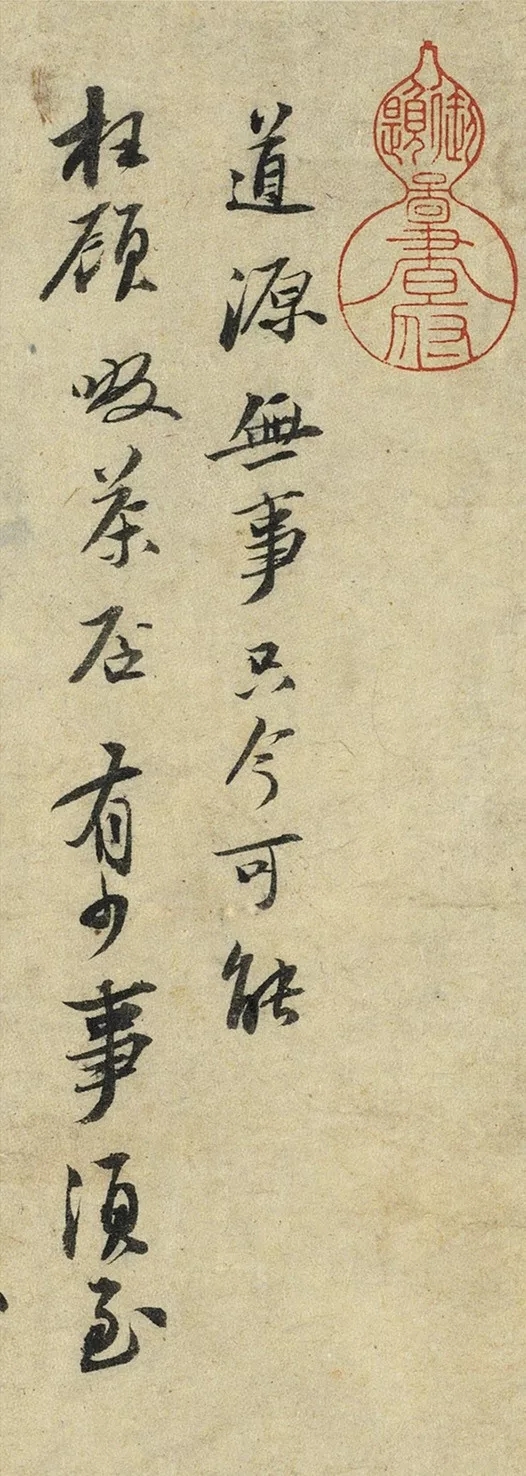 御題圖書府
道源無事只今可能
枉顧啜茶否有少事須至